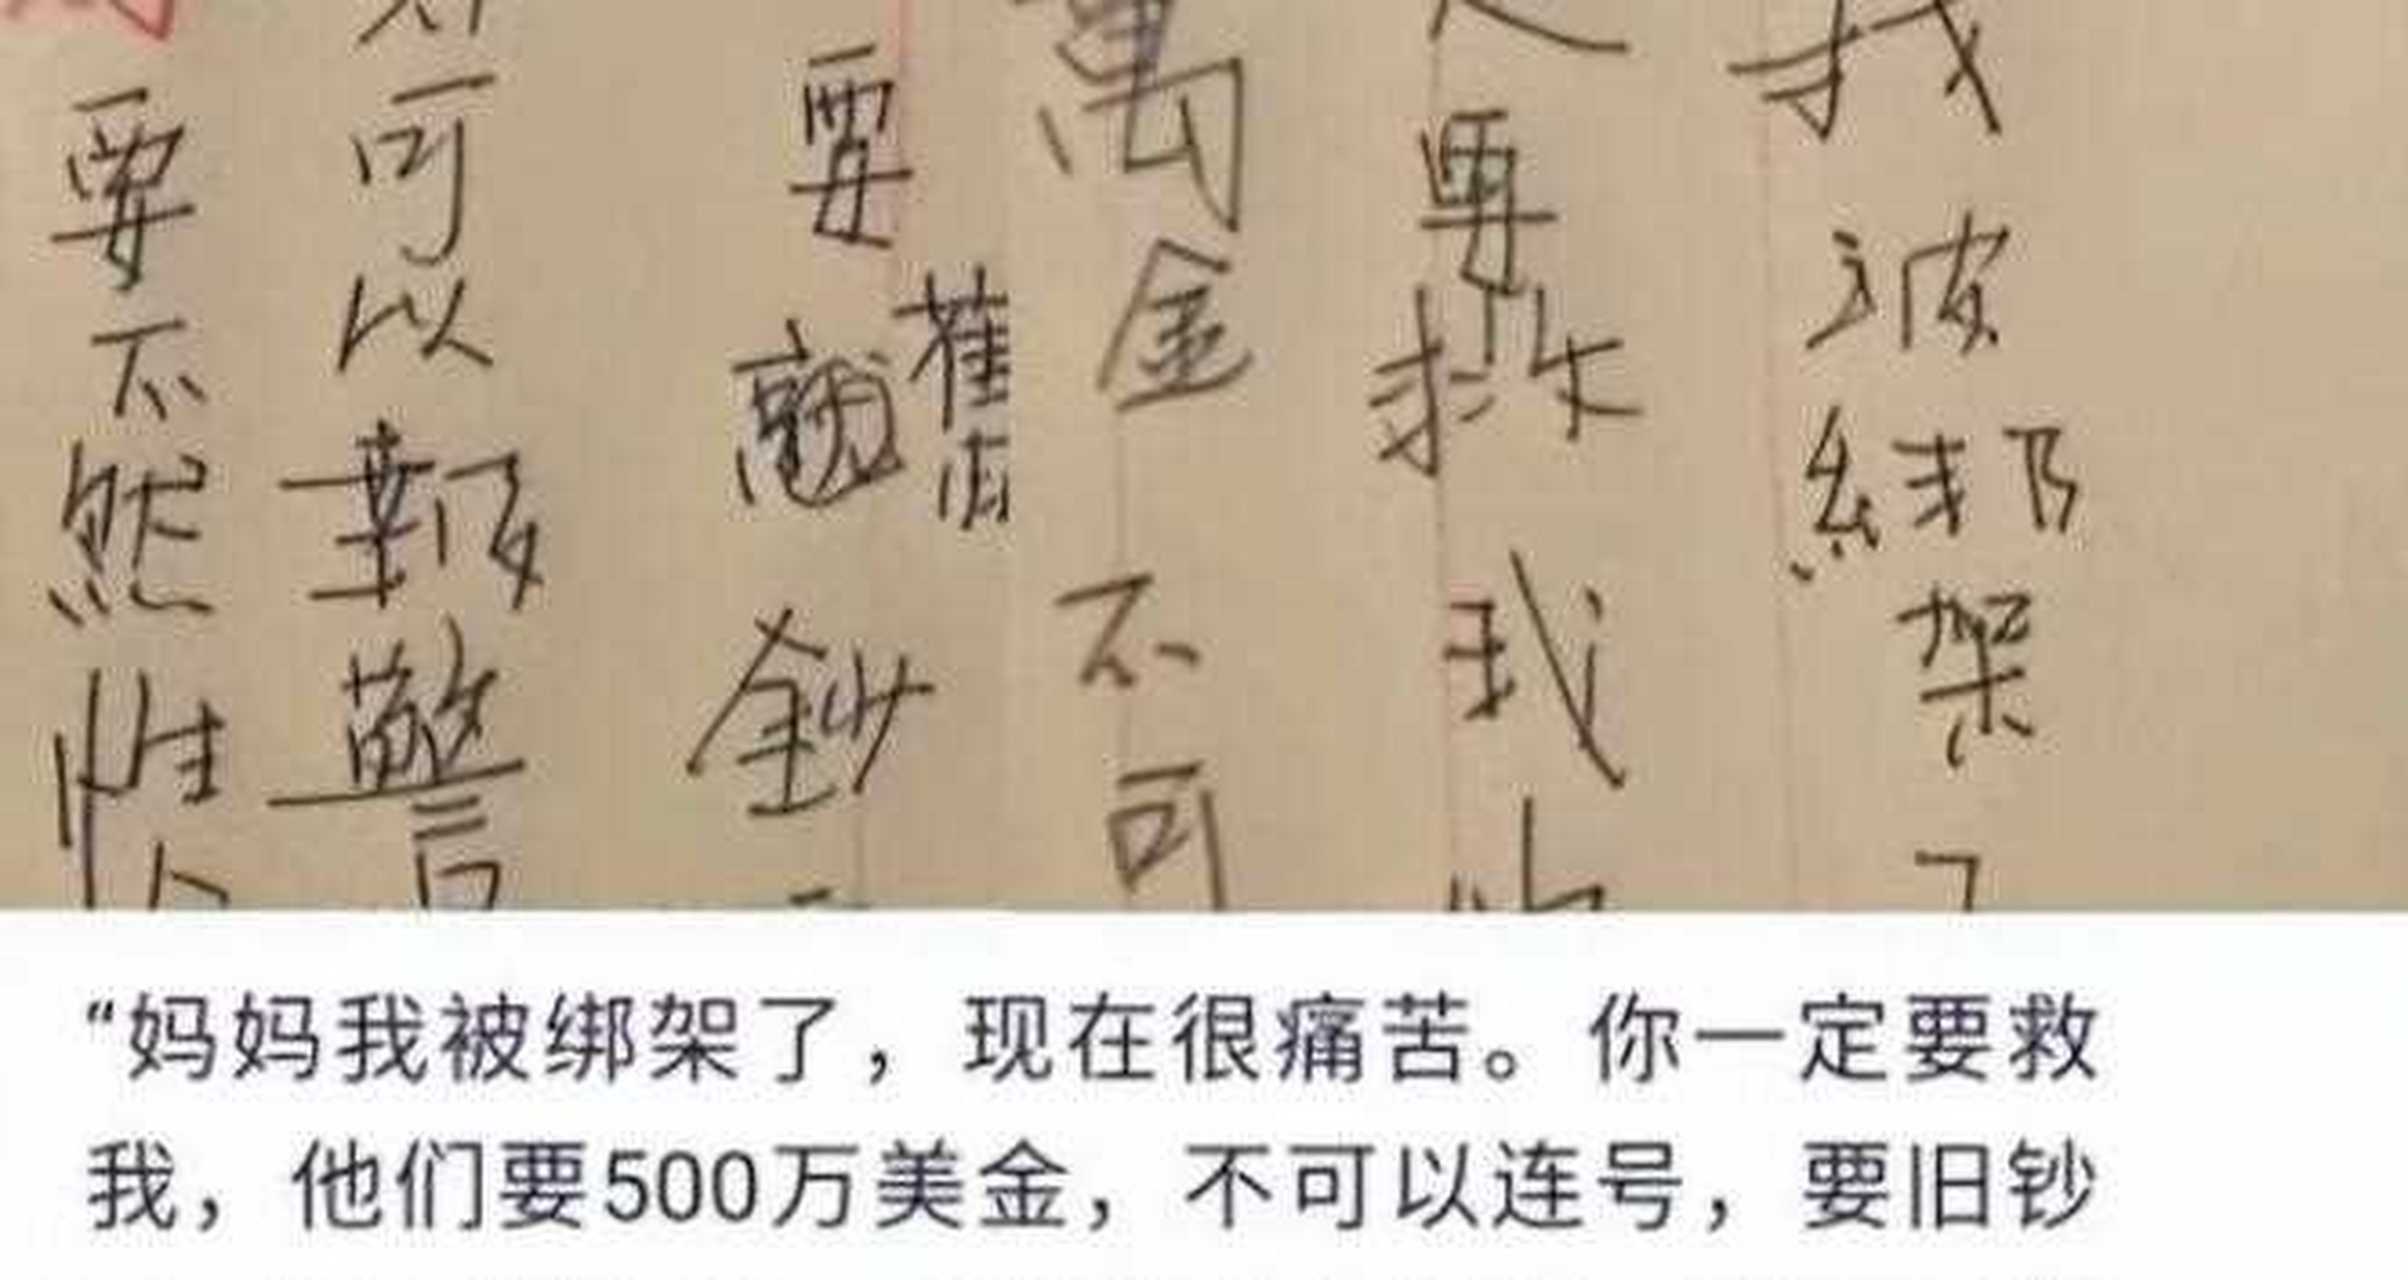 我被綁架了
要救我
萬金不可
要舊鈔
可以報警
要不然性
“妈妈我被绑架了，现在很痛苦。你一定要救
我，他们要500万美金，不可以连号，要旧钞